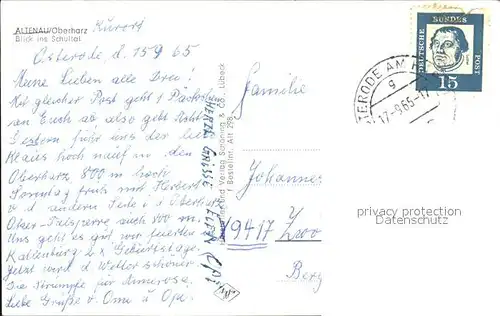 ALTENAU/Oberharz
Blick ins Schultal
Kurort
Osterode, d. 15 9 65
Meine Lieben alle Drei!
Mit gleicher Post geht 1 Päckchen
an Euch ab also gibt Acht
Gestern fuhr uns der liebe
Klaus hoch nauf in den
Oberharz 800 m hoch
Sonntag früh mit Herbert
v d andern Seite i d Oberharz
Oker-Talsperre auch 800 m.
Uns geht es gut wir feierten
Katlenburg 2 x Geburtstage.
Jetzt wird d Wetter schöner
Die Strümpfe für Annerose.
Liebe Grüße v. Oma u Opa.
HERZL. GRÜSSE
Verlag Schöning & Co., Lübeck
Bestellnr. Alt. 298
Familie
Johannes
9417
Berg
DEUTSCHE BUNDES POST
15
OSTERODE AM H
g
17.-9.65-17
privacy protection
oldthing.de